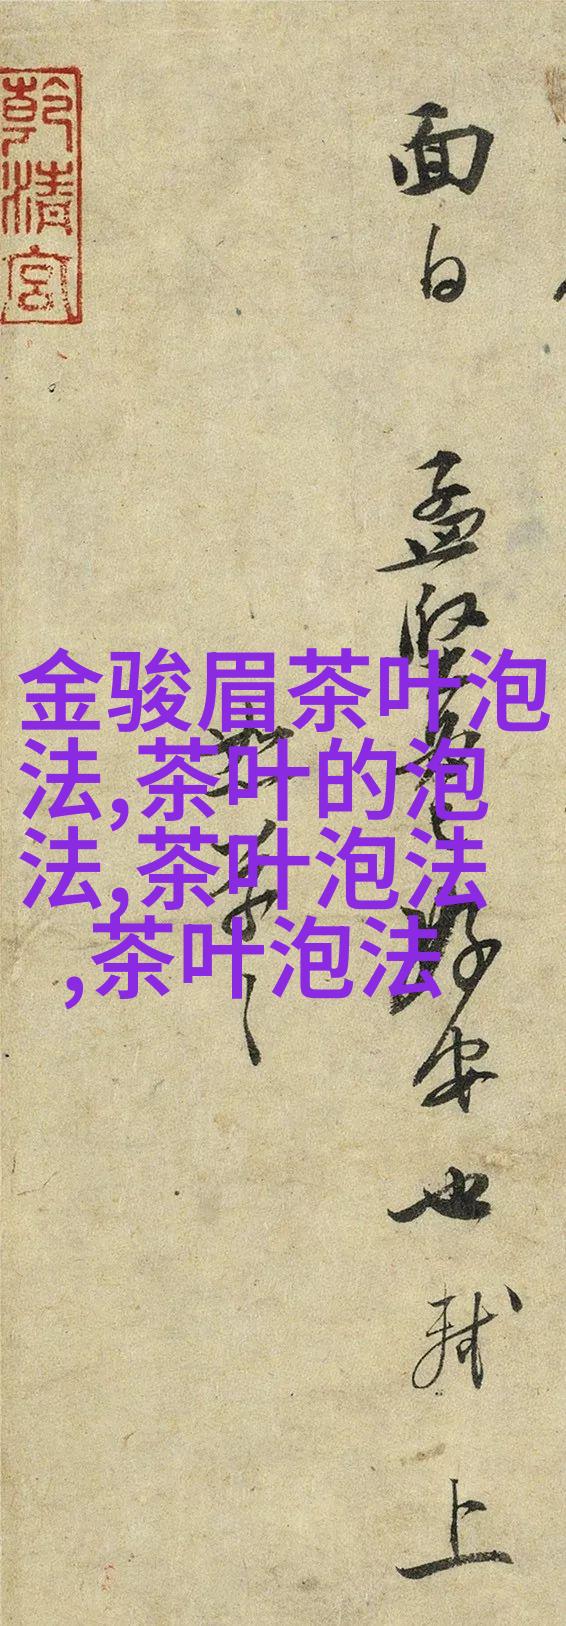 面白
孟堅
好安也軾上
乾清宮
金骏眉茶叶泡
法,茶叶的泡
法,茶叶泡法
,茶叶泡法